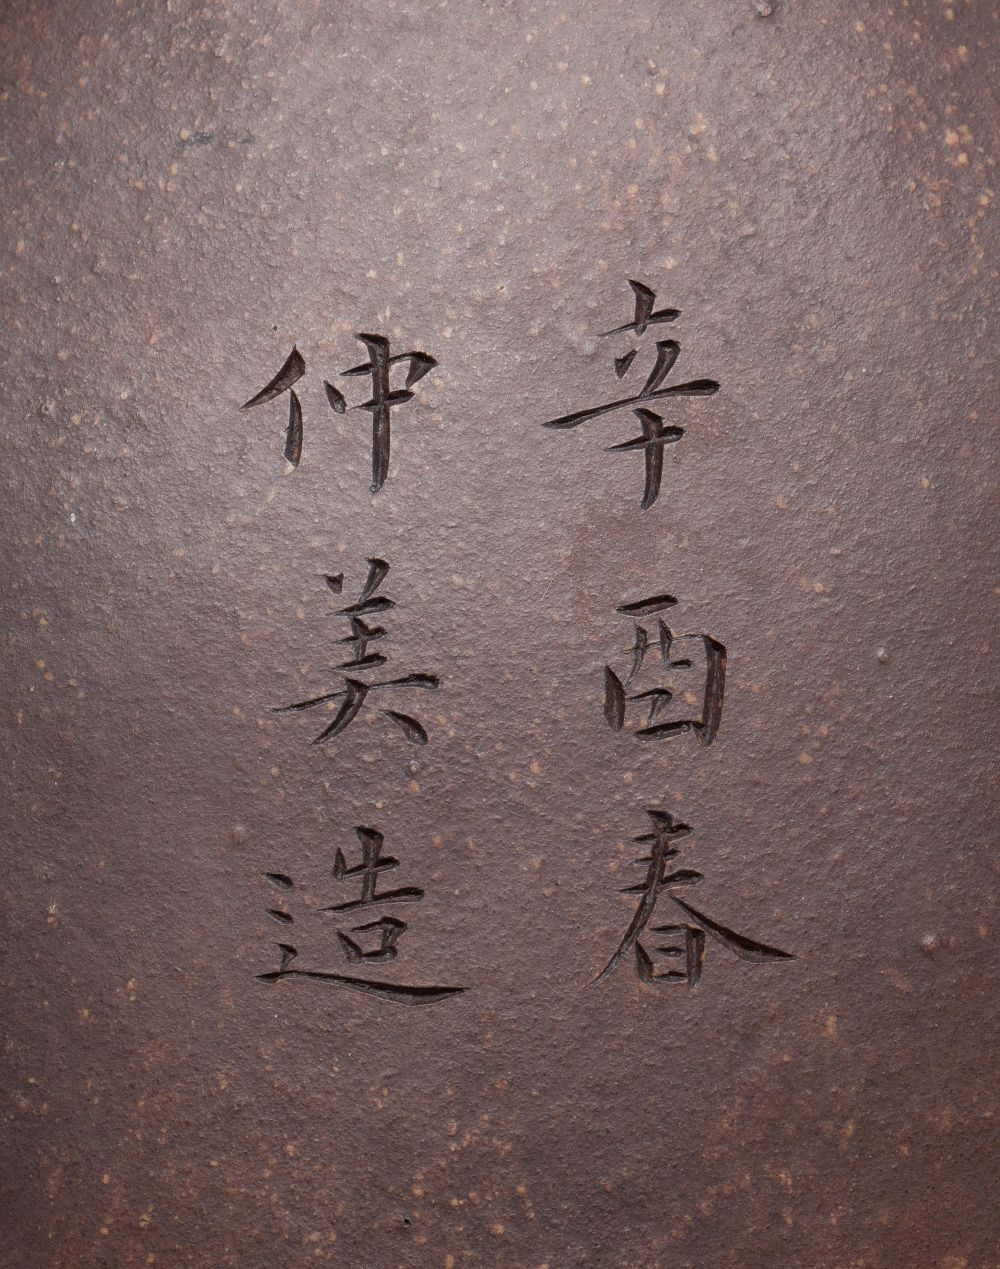 辛酉春
仲美造